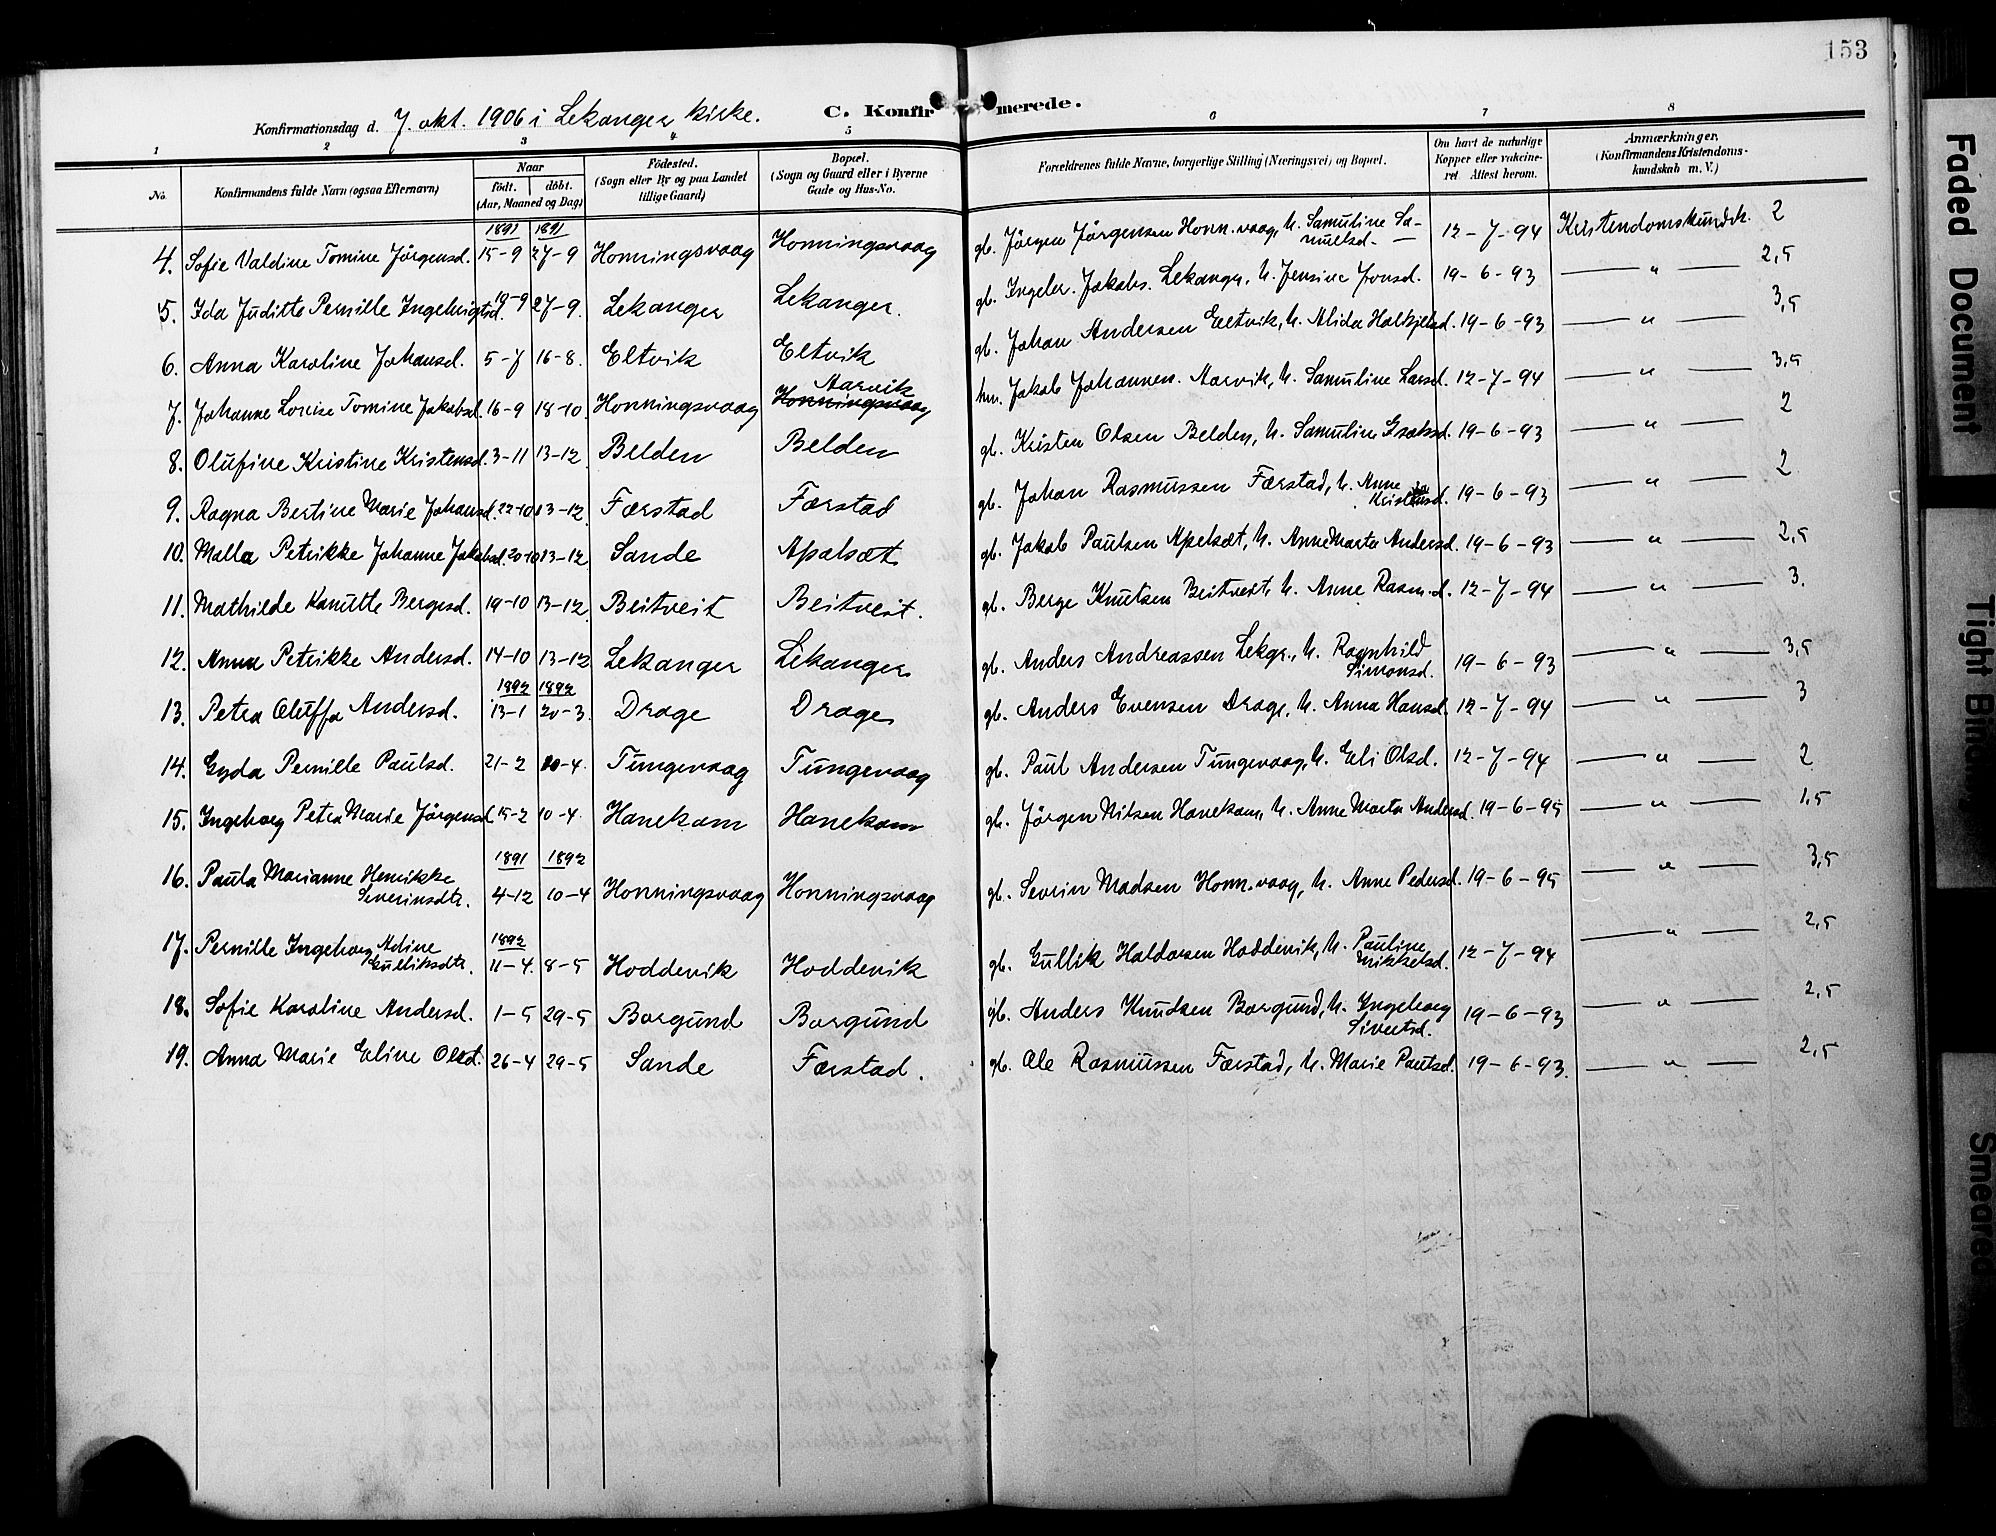 153
Konfirmationsdag d. 7. okt. 1906 i Lekanger kirke. C. Konfirmerede.
1 2 3 4 5 6 7 8
No. Konfirmandens fulde Navn (ogsaa Efternavn) Naar födt. döbt. (Aar, Maaned og Dag) Födested. (Sogn eller By og paa Landet tillige Gaard) Bopæl. (Sogn og Gaard eller i Byerne Gade og Hus-No. Forældrenes fulde Navne, borgerlige Stilling (Næringsvei) og Bopæl. Om havt de naturlige Kopper eller vakcineret Attest herom. Anmærkninger. (Konfirmandens Kristendomskundskab m. V.)
1891 1891
4. Sofie Valdine Tomine Jörgensd. 15-9 27-9 Honningsvaag Honningsvaag gb. Jörgen Jörgensen Honn.vaag, h. Samuline Samuelsd. 12-7-94 Kristendomskundsk. 2
5. Ida Juditte Pernille Ingebrigtsd. 19-9 27-9. Lekanger Lekanger. gb. Ingebr. Jakobs. Lekanger, h. Jensine Jonsd. 19-6-93 — " — 2,5
6. Anna Karoline Johansd. 5-7 16-8. Eltvik Eltvik gb. Johan Andersen Eltvik, h. Alida Halkjelsd. 19-6-93 — " — 3,5
7. Johanne Lovise Tomine Jakobsd. 16-9 18-10. Honningsvaag Honningsvaag Aarvik hm. Jakob Johannen. Aarvik, h. Samuline Larsd. 12-7-94 — " — 3,5
8. Olufine Kristine Kristensd. 3-11 13-12. Belden Belden gb. Kristen Olsen Belden, h. Samuline Isaksd. 19-6-93 — " — 2
9. Ragna Bertine Marie Johansd. 22-10 13-12. Færstad Færstad gb. Johan Rasmussen Færstad, h. Anne Kristensd. 19-6-93 — " — 2
10. Malla Petrikke Johanne Jakobsd. 20-10 13-12 Sande Apalsæt gb. Jakob Paulsen Apelsæt, h. Anne Marta Andersd. 19-6-93 — " — 2,5
11. Mathilde Kanutte Bergesd. 19-10 13-12. Beitveit Beitveit. gb. Berge Knutsen Beitveit, h. Anne Rasm.d. 12-7-94 — " — 3.
12. Anna Petrikke Andersd. 14-10 13-12 Lekanger Lekanger gb. Anders Andreassen Lekgr., h. Ragnhild Simonsd. 19-6-93 — " — 3,5
1892 1892
13. Petra Oluffa Andersd. 13-1 20-3. Drage Drage gb. Anders Evensen Drage, h. Anna Hansd. 12-7-94 — " — 3
14. Gyda Pernille Paulsd. 21-2 10-4. Tungevaag Tungevaag gb. Paul Andersen Tungevaag, h. Eli Olsd. 12-7-94 — " — 2
15. Ingeborg Petra Marie Jörgensd. 15-2 10-4. Hanekam Hanekam gb. Jörgen Nilsen Hanekam, h. Anne Marta Andersd. 19-6-95 — " — 1,5
1891 1892
16. Paula Marianne Henrikke Severinsdtr. 4-12 10-4 Honningsvaag Honningsvaag gb. Severin Madsen Honn.vaag, h. Anne Pedersd. 19-6-95 — " — 3,5
1892
17. Pernille Ingeborg Adine Gulliksdtr. 11-4. 8-5 Hoddevik Hoddevik gb. Gullik Haldorsen Hoddevik, h. Pauline Mikkelsd. 12-7-94 — " — 2,5
18. Sofie Karoline Andersd. 1-5 29-5 Borgund Borgund gb. Anders Knudsen Borgund, h. Ingeborg Sivertsd. 19-6-93 — " — 2,5
19. Anna Marie Eline Olsd. 26-4 29-5 Sande Færstad. gb. Ole Rasmussen Færstad, h. Marie Paulsd. 19-6-93. — " — 2,5
Faded Document
Tight Binding
Smeared